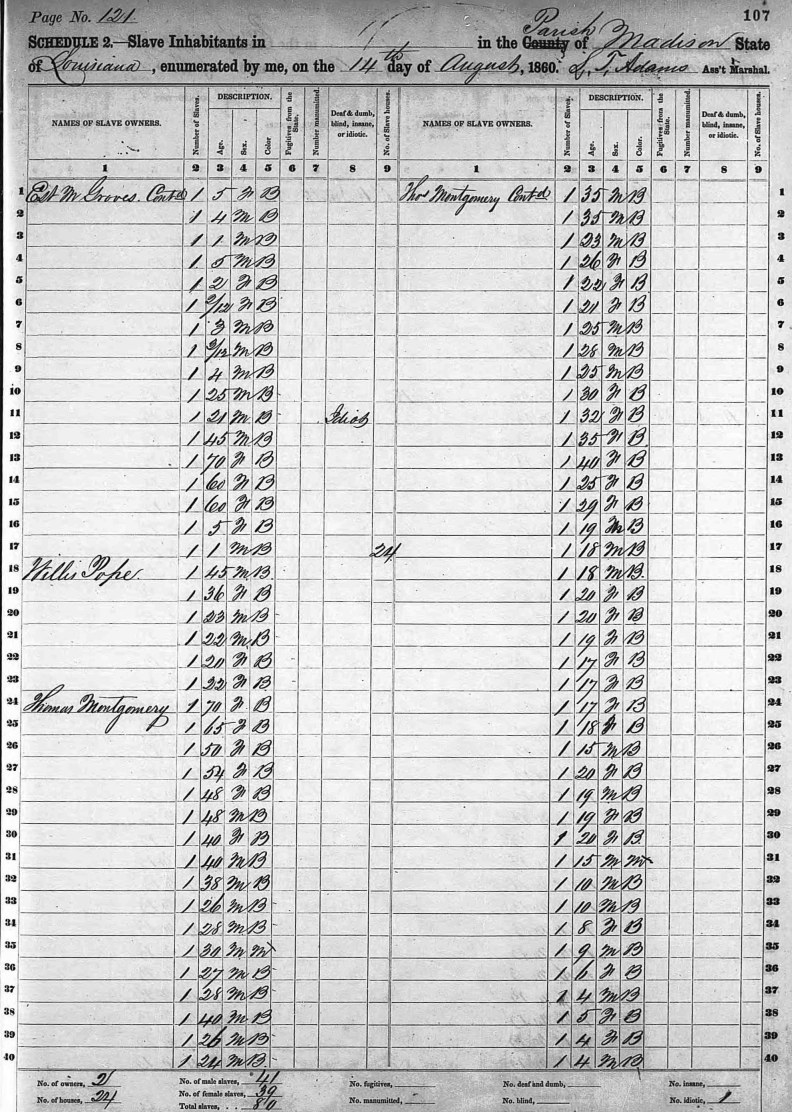 Page No. 121
107
SCHEDULE 2.—Slave Inhabitants in in the County Parish of Madison State
of Louisiana, enumerated by me, on the 14th day of August, 1860. L. T. Adams Ass't Marshal.
NAMES OF SLAVE OWNERS. Number of Slaves. DESCRIPTION. Age. Sex. Color. Fugitives from the State. Number manumitted. Deaf & dumb, blind, insane, or idiotic. No. of Slave houses. NAMES OF SLAVE OWNERS. Number of Slaves. DESCRIPTION. Age. Sex. Color. Fugitives from the State. Number manumitted. Deaf & dumb, blind, insane, or idiotic. No. of Slave houses.
1 2 3 4 5 6 7 8 9 1 2 3 4 5 6 7 8 9
1 Est M Groves. Contd 1 5 F B Thos Montgomery Contd 1 35 M B 1
2 1 4 M B 1 35 M B 2
3 1 1 M B 1 23 M B 3
4 1 5 M B 1 26 F B 4
5 1 2 F B 1 22 F B 5
6 1 2/12 F B 1 21 F B 6
7 1 3 M B 1 25 M B 7
8 1 2/12 M B 1 28 M B 8
9 1 4 M B 1 25 M B 9
10 1 25 M B 1 30 F B 10
11 1 21 M B Idiot 1 32 F B 11
12 1 45 M B 1 35 F B 12
13 1 70 F B 1 40 F B 13
14 1 60 F B 1 25 F B 14
15 1 60 F B 1 29 F B 15
16 1 5 F B 1 19 M B 16
17 1 1 M B 24 1 18 M B 17
18 Willis Pope. 1 45 M B 1 18 M B 18
19 1 36 F B 1 20 F B 19
20 1 23 M B 1 20 F B 20
21 1 22 M B 1 19 F B 21
22 1 20 F B 1 17 F B 22
23 1 22 F B 1 17 F B 23
24 Thomas Montgomery 1 70 F B 1 17 F B 24
25 1 65 F B 1 18 F B 25
26 1 50 F B 1 15 M B 26
27 1 54 F B 1 20 F B 27
28 1 48 F B 1 19 M B 28
29 1 48 M B 1 19 F B 29
30 1 40 F B 1 20 F B 30
31 1 40 M B 1 15 M M 31
32 1 38 M B 1 10 M B 32
33 1 26 M B 1 10 M B 33
34 1 28 M B 1 8 F B 34
35 1 30 M M 1 9 M B 35
36 1 27 M B 1 6 F B 36
37 1 28 M B 1 4 M B 37
38 1 40 M B 1 5 F B 38
39 1 26 M B 1 4 F B 39
40 1 24 M B 1 4 M B 40
No. of owners, 2 No. of male slaves, 41 No. fugitives, No. of deaf and dumb, No. insane,
No. of houses, 24 No. of female slaves, 39 No. manumitted, No. blind, No. idiotic, 1
Total slaves, . . . 80